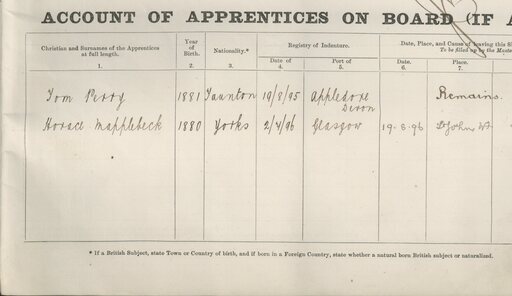 ACCOUNT OF APPRENTICES ON BOARD (IF A
Christian and Surnames of the Apprentices at full length.
Year of Birth.
Nationality.*
Registry of Indenture.
Date, Place, and Cause of leaving this S
To be filled up by the Maste
Date of
Port of
Date.
Place.
1. 2. 3. 4. 5. 6. 7.
Tom Perry 1881 Taunton 19/8/95 Appledore Devon Remains.
Horace Mapplebeck 1880 Yorks 2/4/96 Glasgow 19-8-96 St John
* If a British Subject, state Town or Country of birth, and if born in a Foreign Country, state whether a natural born British subject or naturalized.